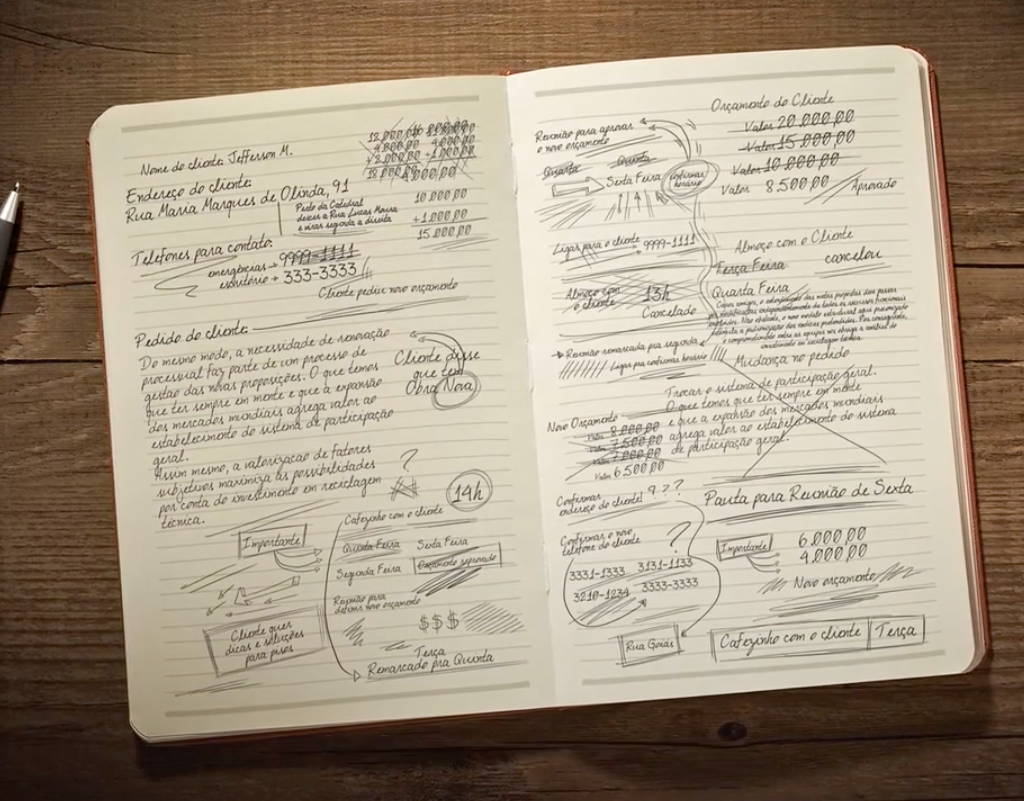 Nome do cliente: Jefferson M.
Endereço do cliente:
Rua Maria Marques de Olinda, 91
Perto da Catedral
descer a Rua Lucas Moura
e virar segunda a direita
18.000,00
4.000,00
+2.000,00
18.000,00
4.000,00
10.000,00
+1.000,00
15.000,00
Telefones para contato:
emergências → 9999-1111
escritório → 333-3333
Cliente pediu novo orçamento
Pedido do cliente:
Do mesmo modo, a necessidade de renovação
processual faz parte de um processo de
gestão das novas proposições. O que temos
que ter sempre em mente e que a expansão
dos mercados mundiais agrega valor ao
estabelecimento do sistema de participação
geral.
Assim mesmo, a valorização de fatores
subjetivos maximiza as possibilidades
por conta do investimento em reciclagem
técnica.
Cliente disse
que tem
Obra Nova
?
14h
Cafezinho com o cliente
Importante
Quinta Feira Sexta Feira
Segunda Feira Orçamento reprovado
Reunião para
definir novo orçamento
$$$
Cliente quer
dicas e soluções
para pisos
Terça
Remarcado pra Quinta
Reunião para aprovar
o novo orçamento
Quarta Quinta
Sexta Feira
Confirmar
horário
Orçamento do Cliente
Valor 20.000,00
Valor 15.000,00
Valor 10.000,00
Valor 8.500,00 Aprovado
Ligar para o cliente 9999-1111
Almoço com
o cliente 13h
Cancelado
Almoço com o Cliente
Terça Feira cancelou
Quarta Feira
Reunião remarcada pra segunda
Ligar pra confirmar horário
Mudança no pedido
Trocar o sistema de participação geral.
O que temos que ter sempre em mente
e que a expansão dos mercados mundiais
agrega valor ao estabelecimento do sistema
de participação geral.
Novo Orçamento
Valor 8.000,00
Valor 7.500,00
Valor 7.000,00
Valor 6.500,00
Confirmar
endereço do cliente! ???
Confirmar o novo
telefone do cliente ?
3331-1333 3131-1133
3210-1234 3333-3333
Rua Goiás
Pauta para Reunião de Sexta
Importante
6.000,00
4.000,00
Novo orçamento
Cafezinho com o cliente Terça